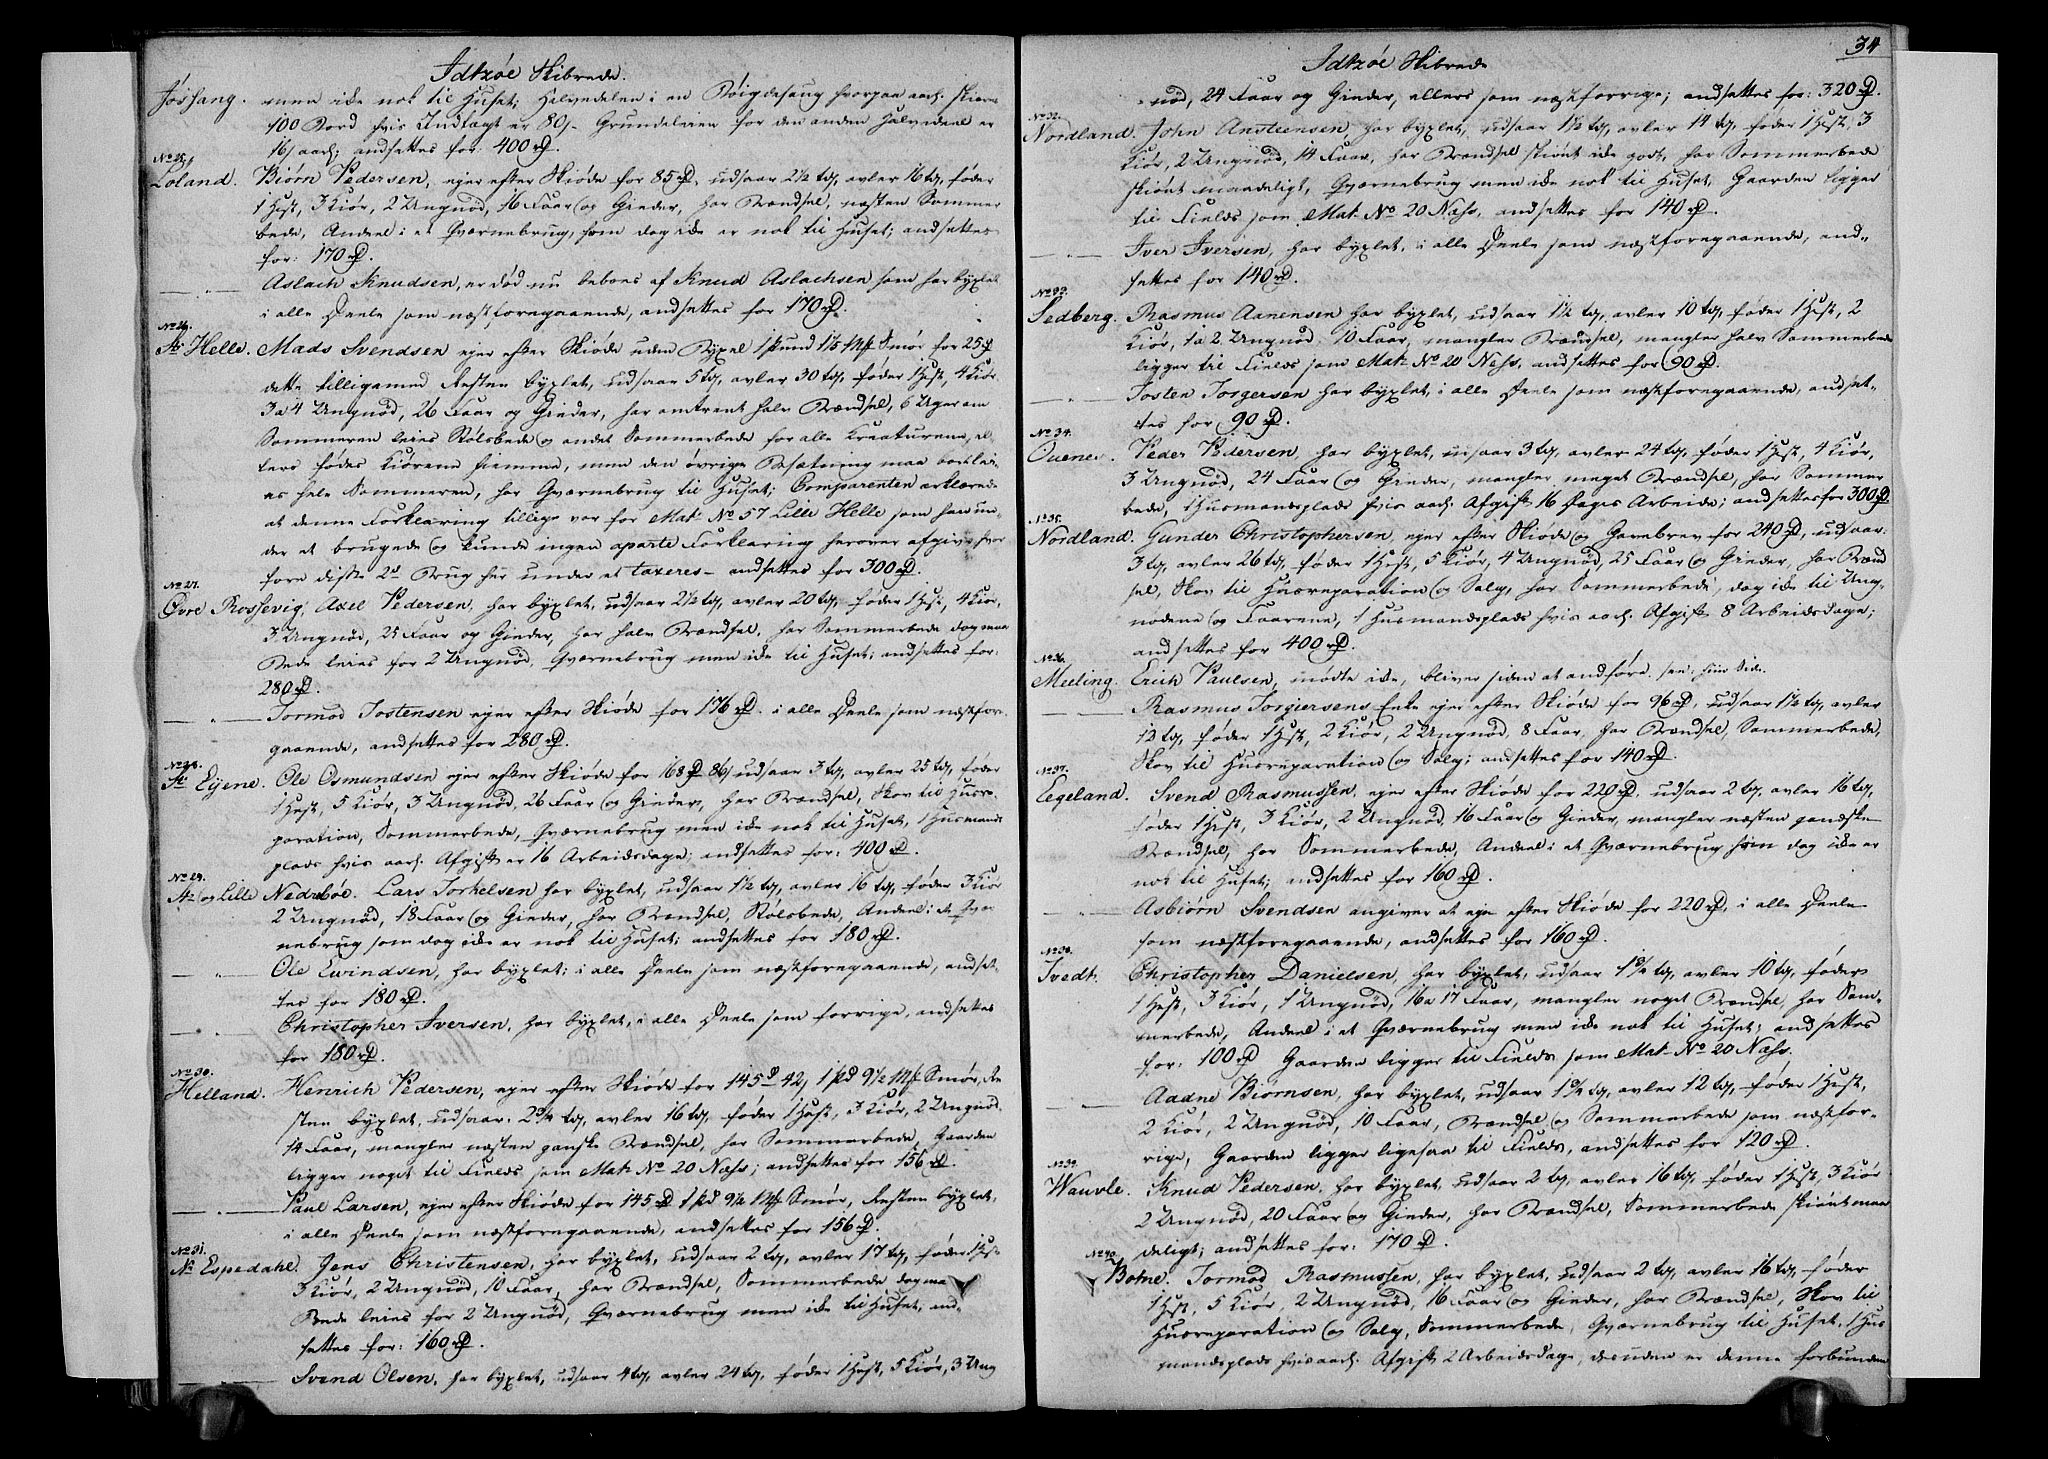 Idtzøe Skibrede.
Jøssang. men ikke nok til Huset; Halvedelen i en Bøigdesaug hvorpaa aarl: skiæres
100 Bord hvis Indlagt er 80/- Grundeleien for den anden Halvedeel er
16/ aarl; andsettes for: 400 rD.
No 25.
Loland. Biørn Pedersen, ejer efter Skiøde for 85 rD, udsaar 2½ tø, avler 16 tø, føder
1 Hest, 3 Kiør, 2 Ungnød, 16 Faar og Gieder, har Brændsel, næsten Sommer
bede, Andeel i et Qværnebrug, som dog ikke er nok til Huset; andsettes
for: 170 rD.
— " — Aslach Knudsen, er død nu beboes af Knud Aslachsen som har byxlet
i alle Deele som næstforegaaende, andsettes for 170 rD.
No 26.
St: Helle. Mads Svendsen ejer efter Skiøde uden Byxel 1 pund 1½ Mk Smør for 25 rD
dette tilligemed Resten byxlet, udsaar 5 tø, avler 30 tø, føder 1 Hest, 4 Kiør
3 a 4 Ungnød, 26 Faar og Gieder, har omtrent halv Brændsel, 6 Uger om
Sommeren leies Stølsbede og andet Sommerbede for alle Kreaturene, el-
lers fødes Kiørene hiemme, men den øvrige Besætning maa bortlei-
es hele Sommeren, har Qværnebrug til Huset; Comparenten erklærede
at denne Forklaring tillige var for Mat: No 57 Lille Helle som han un-
der et brugede og kunde ingen aparte Forklaring herover afgive hvor
fore disse 2de Brug her under et taxeres - andsettes for 300 rD.
No 27.
Øvre Rossevig, Axel Pedersen, har byxlet, udsaar 2½ tø, avler 20 tø, føder 1 Hest, 4 Kiør,
3 Ungnød, 25 Faar og Gieder, har halv Brændsel, har Sommerbede dog maa
Bede leies for 2 Ungnød, Qværnebrug men ikke til Huset; andsettes for:
280 rD.
— " — Tormod Tostensen ejer efter Skiøde for 176 rD. i alle Deele som næstfor-
gaaende, andsettes for 280 rD.
No 28.
St: Eyene. Ole Osmundsen ejer efter Skiøde for 168 rD 86/ udsaar 3 tø, avler 25 tø, føder
1 Hest, 5 Kiør, 3 Ungnød, 26 Faar og Gieder, har Brændsel, Skov til Husre-
paration, Sommerbede, Qværnebrug men ikke nok til Huset, 1 Husmands
plads hvis aarl. Afgift er 16 Arbeidsdage; andsettes for: 400 rD.
No 29.
St: og Lille Nedrebøe. Lars Torkelsen har byxlet, udsaar 1½ tø, avler 16 tø, føder 3 Kiør
2 Ungnød, 18 Faar og Gieder, har Brændsel, Stølsbede, Andeel i et Qvær
nebrug som dog ikke er nok til Huset; andsettes for 180 rD.
— " — Ole Ewindsen, har byxlet; i alle Deele som næstforegaaende, andset-
tes for 180 rD.
— " — Christopher Iversen, har byxlet, i alle Deele som forrige, andsettes
for 180 rD.
No 30.
Helland. Henrich Pedersen, ejer efter Skiøde for 145 rD 42/ 1 pd 9½ Mk Smør, Re
sten byxlet, udsaar: 2¾ tø, avler 16 tø, føder 1 Hest, 3 Kiør, 2 Ungnød,
14 Faar, mangler næsten ganske Brændsel, har Sommerbede, Gaarden
ligger noget til Fields som Mat: No 20 Næss; andsettes for 156 rD.
— " — Paul Larsen, ejer efter Skiøde for 145 rD 1 pd 9½ Mk Smør, Resten byxlet,
i alle Deele som næstforegaaende, andsettes for 156 rD.
No 31.
N: Espedahl. Jens Christensen, har byxlet, udsaar 2 tø, avler 17 tø, føder 1 Hest
3 Kiør, 2 Ungnød, 10 Faar, har Brændsel, Sommerbede dog maa
Bede leies for 2 Ungnød, Qværnebrug men ikke til Huset, and-
settes for: 160 rD.
— " — Svend Olsen, har byxlet, udsaar 4 tø, avler 24 tø, føder 1 Hest, 5 Kiør, 3 Ung
34
Idtzøe Skibrede
nød, 24 Faar og Gieder, ellers som næstforrige; andsettes for: 320 rD.
No 32.
Nordland. John Ansteensen, har byxlet, udsaar 1½ tø, avler 14 tø, føder 1 Hest, 3
Kiør, 2 Ungnød, 14 Faar, har Brændsel skiønt ikke godt, har Sommerbede
skiønt maadeligt, Qværnebrug men ikke nok til Huset, Gaarden ligger
til Fields som Mat: No 20 Næss, andsettes for 140 rD.
— " — Iver Iversen, har byxlet, i alle Deele som næstforegaaende, and-
settes for 140 rD.
No 33.
Sedberg. Rasmus Aanensen har byxlet, udsaar 1½ tø, avler 10 tø, føder 1 Hest, 2
Kiør, 1 a 2 Ungnød, 10 Faar, mangler Brændsel, mangler halv Sommerbede
ligger til Fields som Mat: No 20 Næss, andsettes for 90 rD.
— " — Tosten Torgersen har byxlet, i alle Deele som næstforegaaende, andset-
tes for 90 rD.
No 34.
Ouenes. Peder Pedersen, har byxlet, udsaar 3 tø, avler 24 tø, føder 1 Hest, 4 Kiør,
3 Ungnød, 24 Faar og Gieder, mangler meget Brændsel, har Sommer
bede, 1 Husmandsplads hvis aarl. Afgift 16 Dages Arbeide; andsettes for 300 rD.
No 35.
Nordland. Gunder Christophersen, ejer efter Skiøde og Gavebrev for 240 rD, udsaar:
3 tø, avler 26 tø, føder 1 Hest, 5 Kiør, 4 Ungnød, 25 Faar og Gieder, har Brænd
sel, Skov til Husreparation og Salg, har Sommerbede, dog ikke til Ung-
nødene og Faarene, 1 Husmandsplads hvis aarl. Afgift 8 Arbeidsdage;
andsettes for 400 rD.
No 36.
Meeling. Erich Paulsen, mødte ikke, bliver siden at andføre. see: hiin Side.
— Rasmus Torgiersens Enke ejer efter Skiøde for 96 rD, udsaar 1½ tø, avler
12 tø, føder 1 Hest, 2 Kiør, 2 Ungnød, 8 Faar, har Brændsel, Sommerbede,
Skov til Husreparation og Salg; andsettes for 140 rD.
No 37.
Eegeland. Svend Rasmussen, ejer efter Skiøde for 220 rD, udsaar 2 tø, avler 16 tø,
føder 1 Hest, 3 Kiør, 2 Ungnød, 16 Faar og Gieder, mangler næsten ganske
Brændsel, har Sommerbede, Andeel i et Qværnebrug som dog ikke er
nok til Huset; andsettes for 160 rD.
— " — Asbiørn Svendsen angiver at eje efter Skiøde for 220 rD, i alle Deele
som næstforegaaende, andsettes for 160 rD.
No 38.
Tvedt. Christopher Danielsen, har byxlet, udsaar 1¾ tø, avler 10 tø, føder
1 Hest, 3 Kiør, 1 Ungnød, 16 a 17 Faar, mangler noget Brændsel, har Som-
merbede, Andeel i et Qværnebrug men ikke nok til Huset; andsettes
for: 100 rD Gaarden ligger til Fields som Mat: No 20 Næss.
— " — Aadne Biørnsen, har byxlet, udsaar 1¾ tø, avler 12 tø, føder 1 Hest,
2 Kiør, 2 Ungnød, 10 Faar, Brændsel og Sommerbede som næstfor-
rige, Gaarden ligger ligesaa til Fields, andsettes for 120 rD.
No 39.
Wauvle. Knud Pedersen, har byxlet, udsaar 2 tø, avler 16 tø, føder 1 Hest, 3 Kiør
2 Ungnød, 20 Faar og Gieder, har Brændsel, Sommerbede skiønt maa
deligt; andsettes for: 170 rD.
No 40.
Botne. Tormod Rasmussen, har byxlet, udsaar 2 tø, avler 16 tø, føder
1 Hest, 5 Kiør, 2 Ungnød, 16 Faar og Gieder, har Brændsel, Skov til
Husreparation og Salg, Sommerbede, Qværnebrug til Huset, 1 Hus
mandsplads hvis aarl. Afgift 2 Arbeidsdage, desuden er denne forbunden